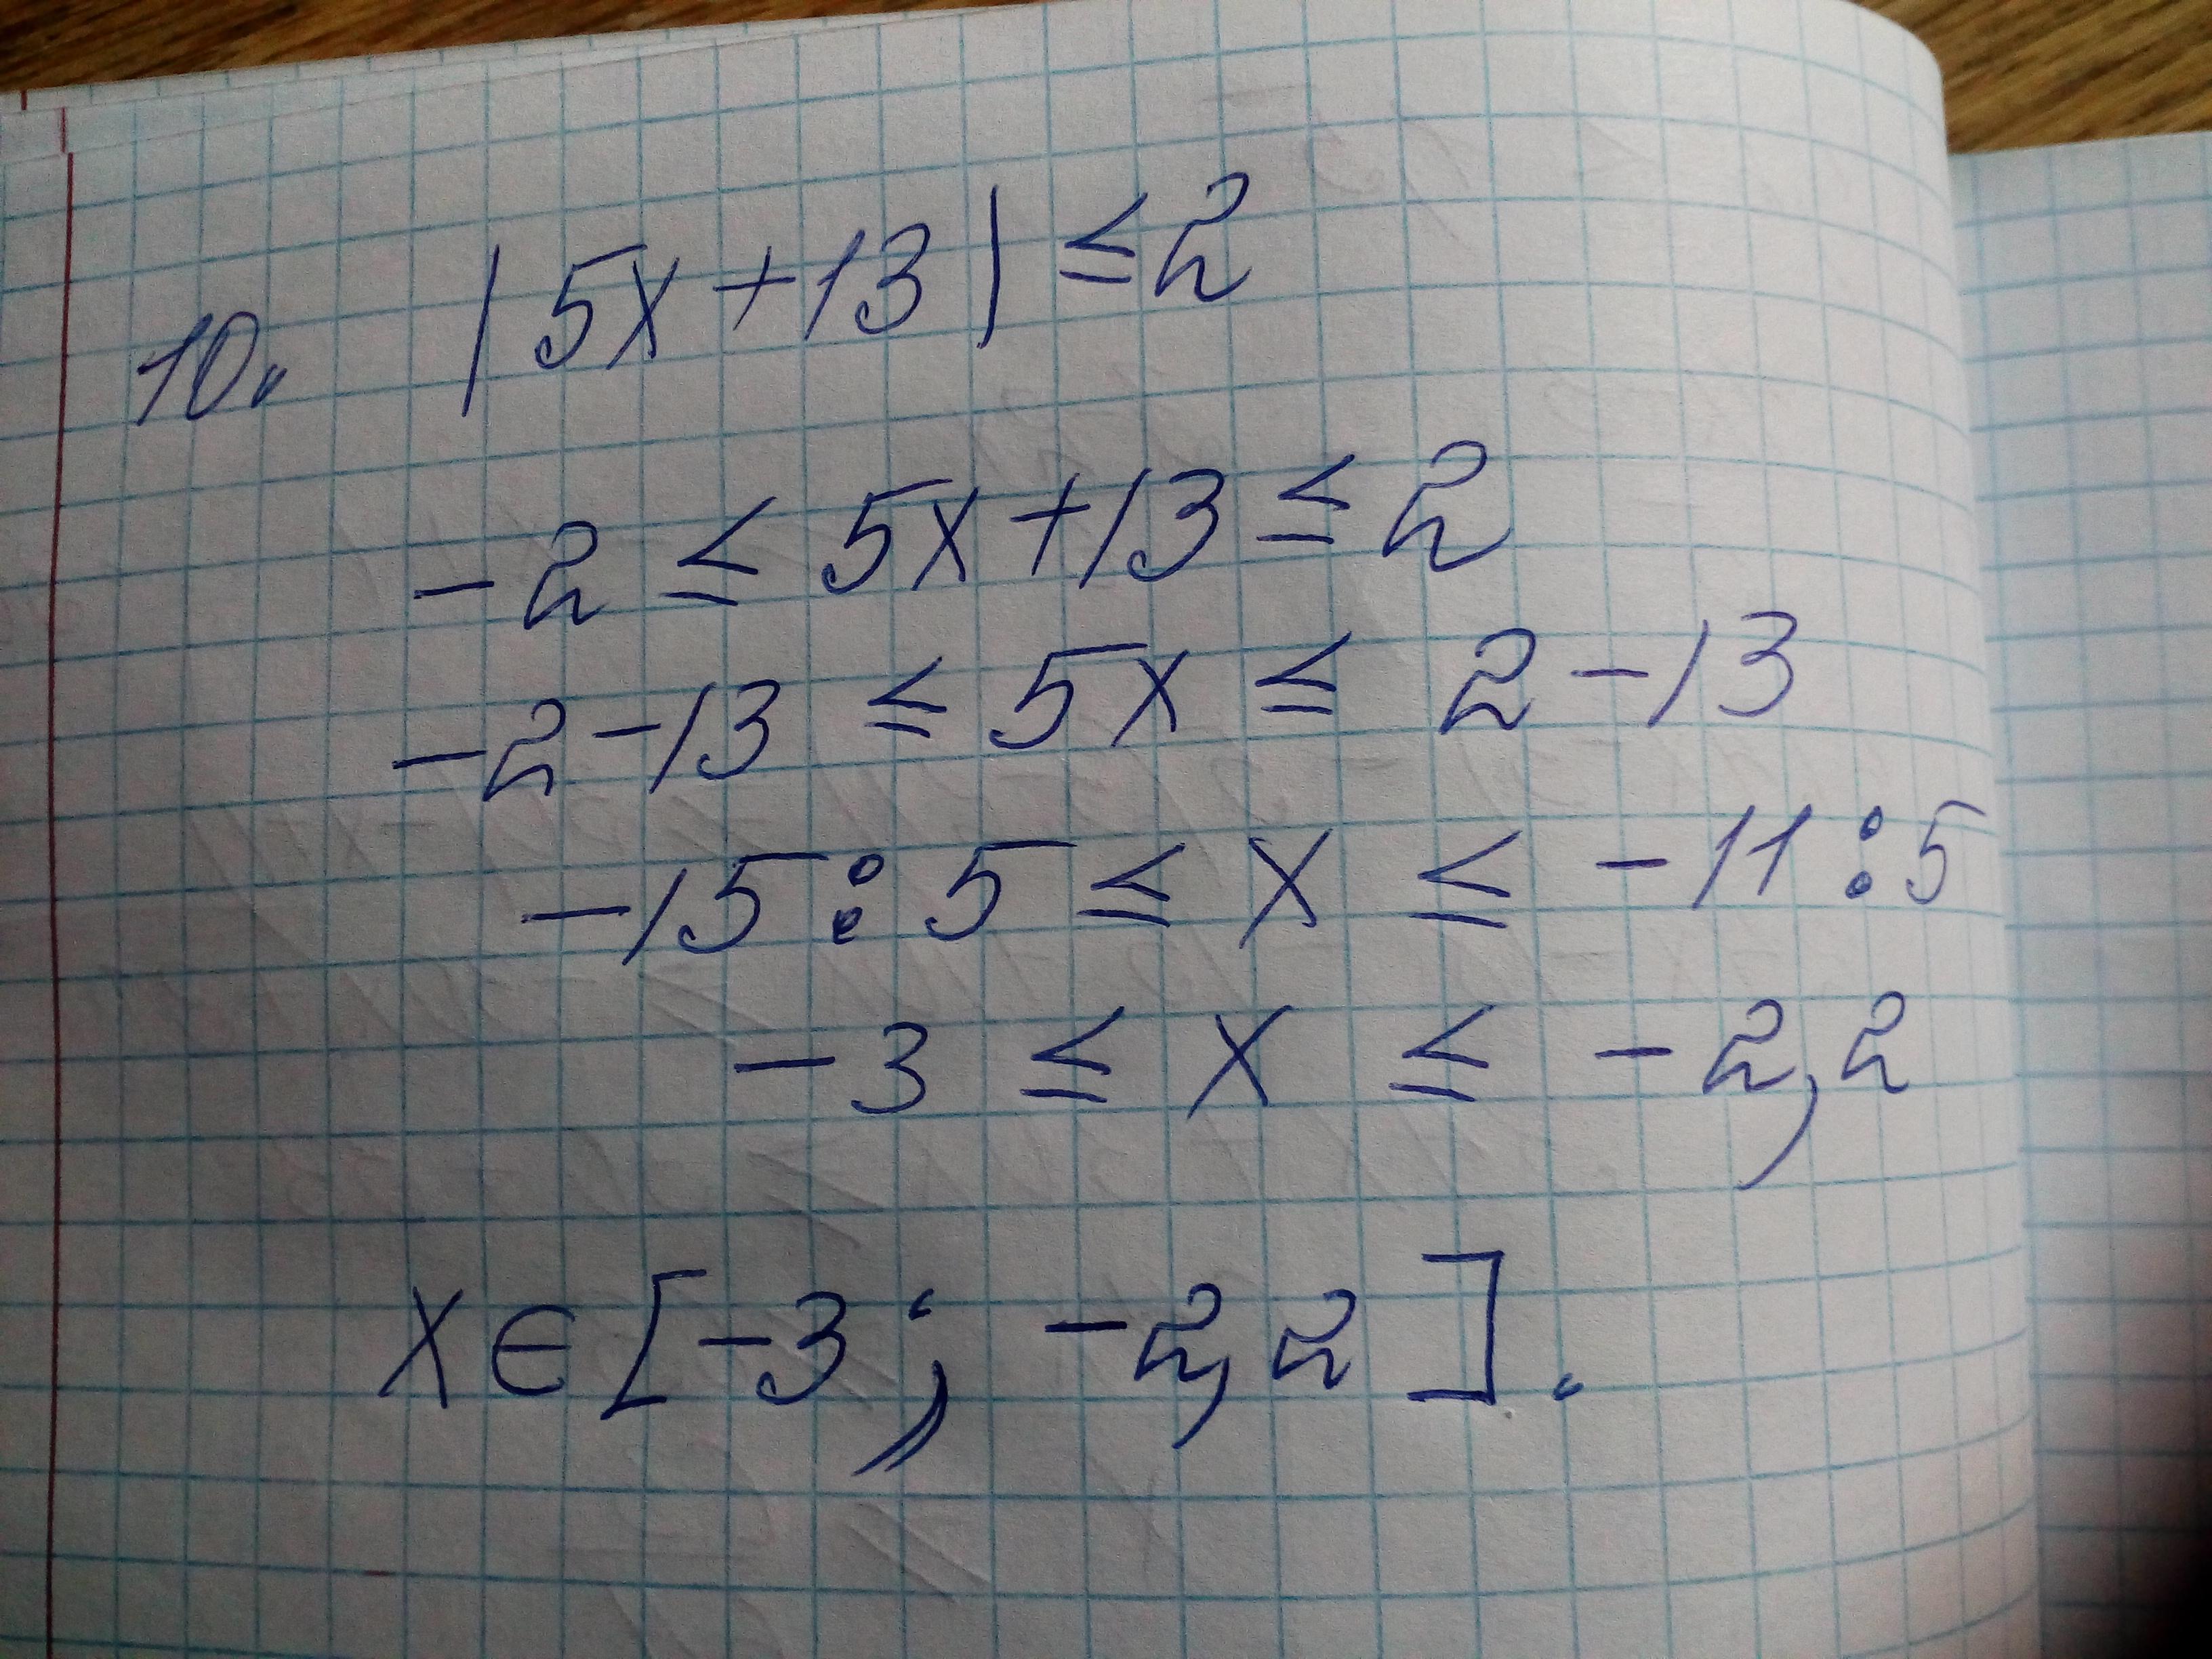 10. |5x+13| ≤ 2
-2 ≤ 5x+13 ≤ 2
-2-13 ≤ 5x ≤ 2-13
-15:5 ≤ x ≤ -11:5
-3 ≤ x ≤ -2,2
x∈[-3; -2,2].